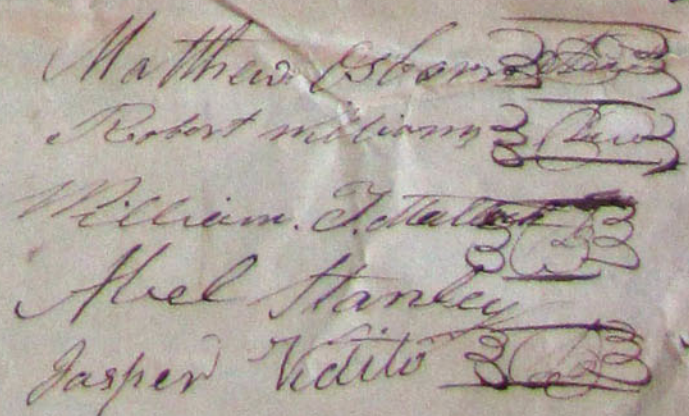 Matthew Osborn
Robert williams
William. T. Matlock
Abel Stanley
Jasper Vidito